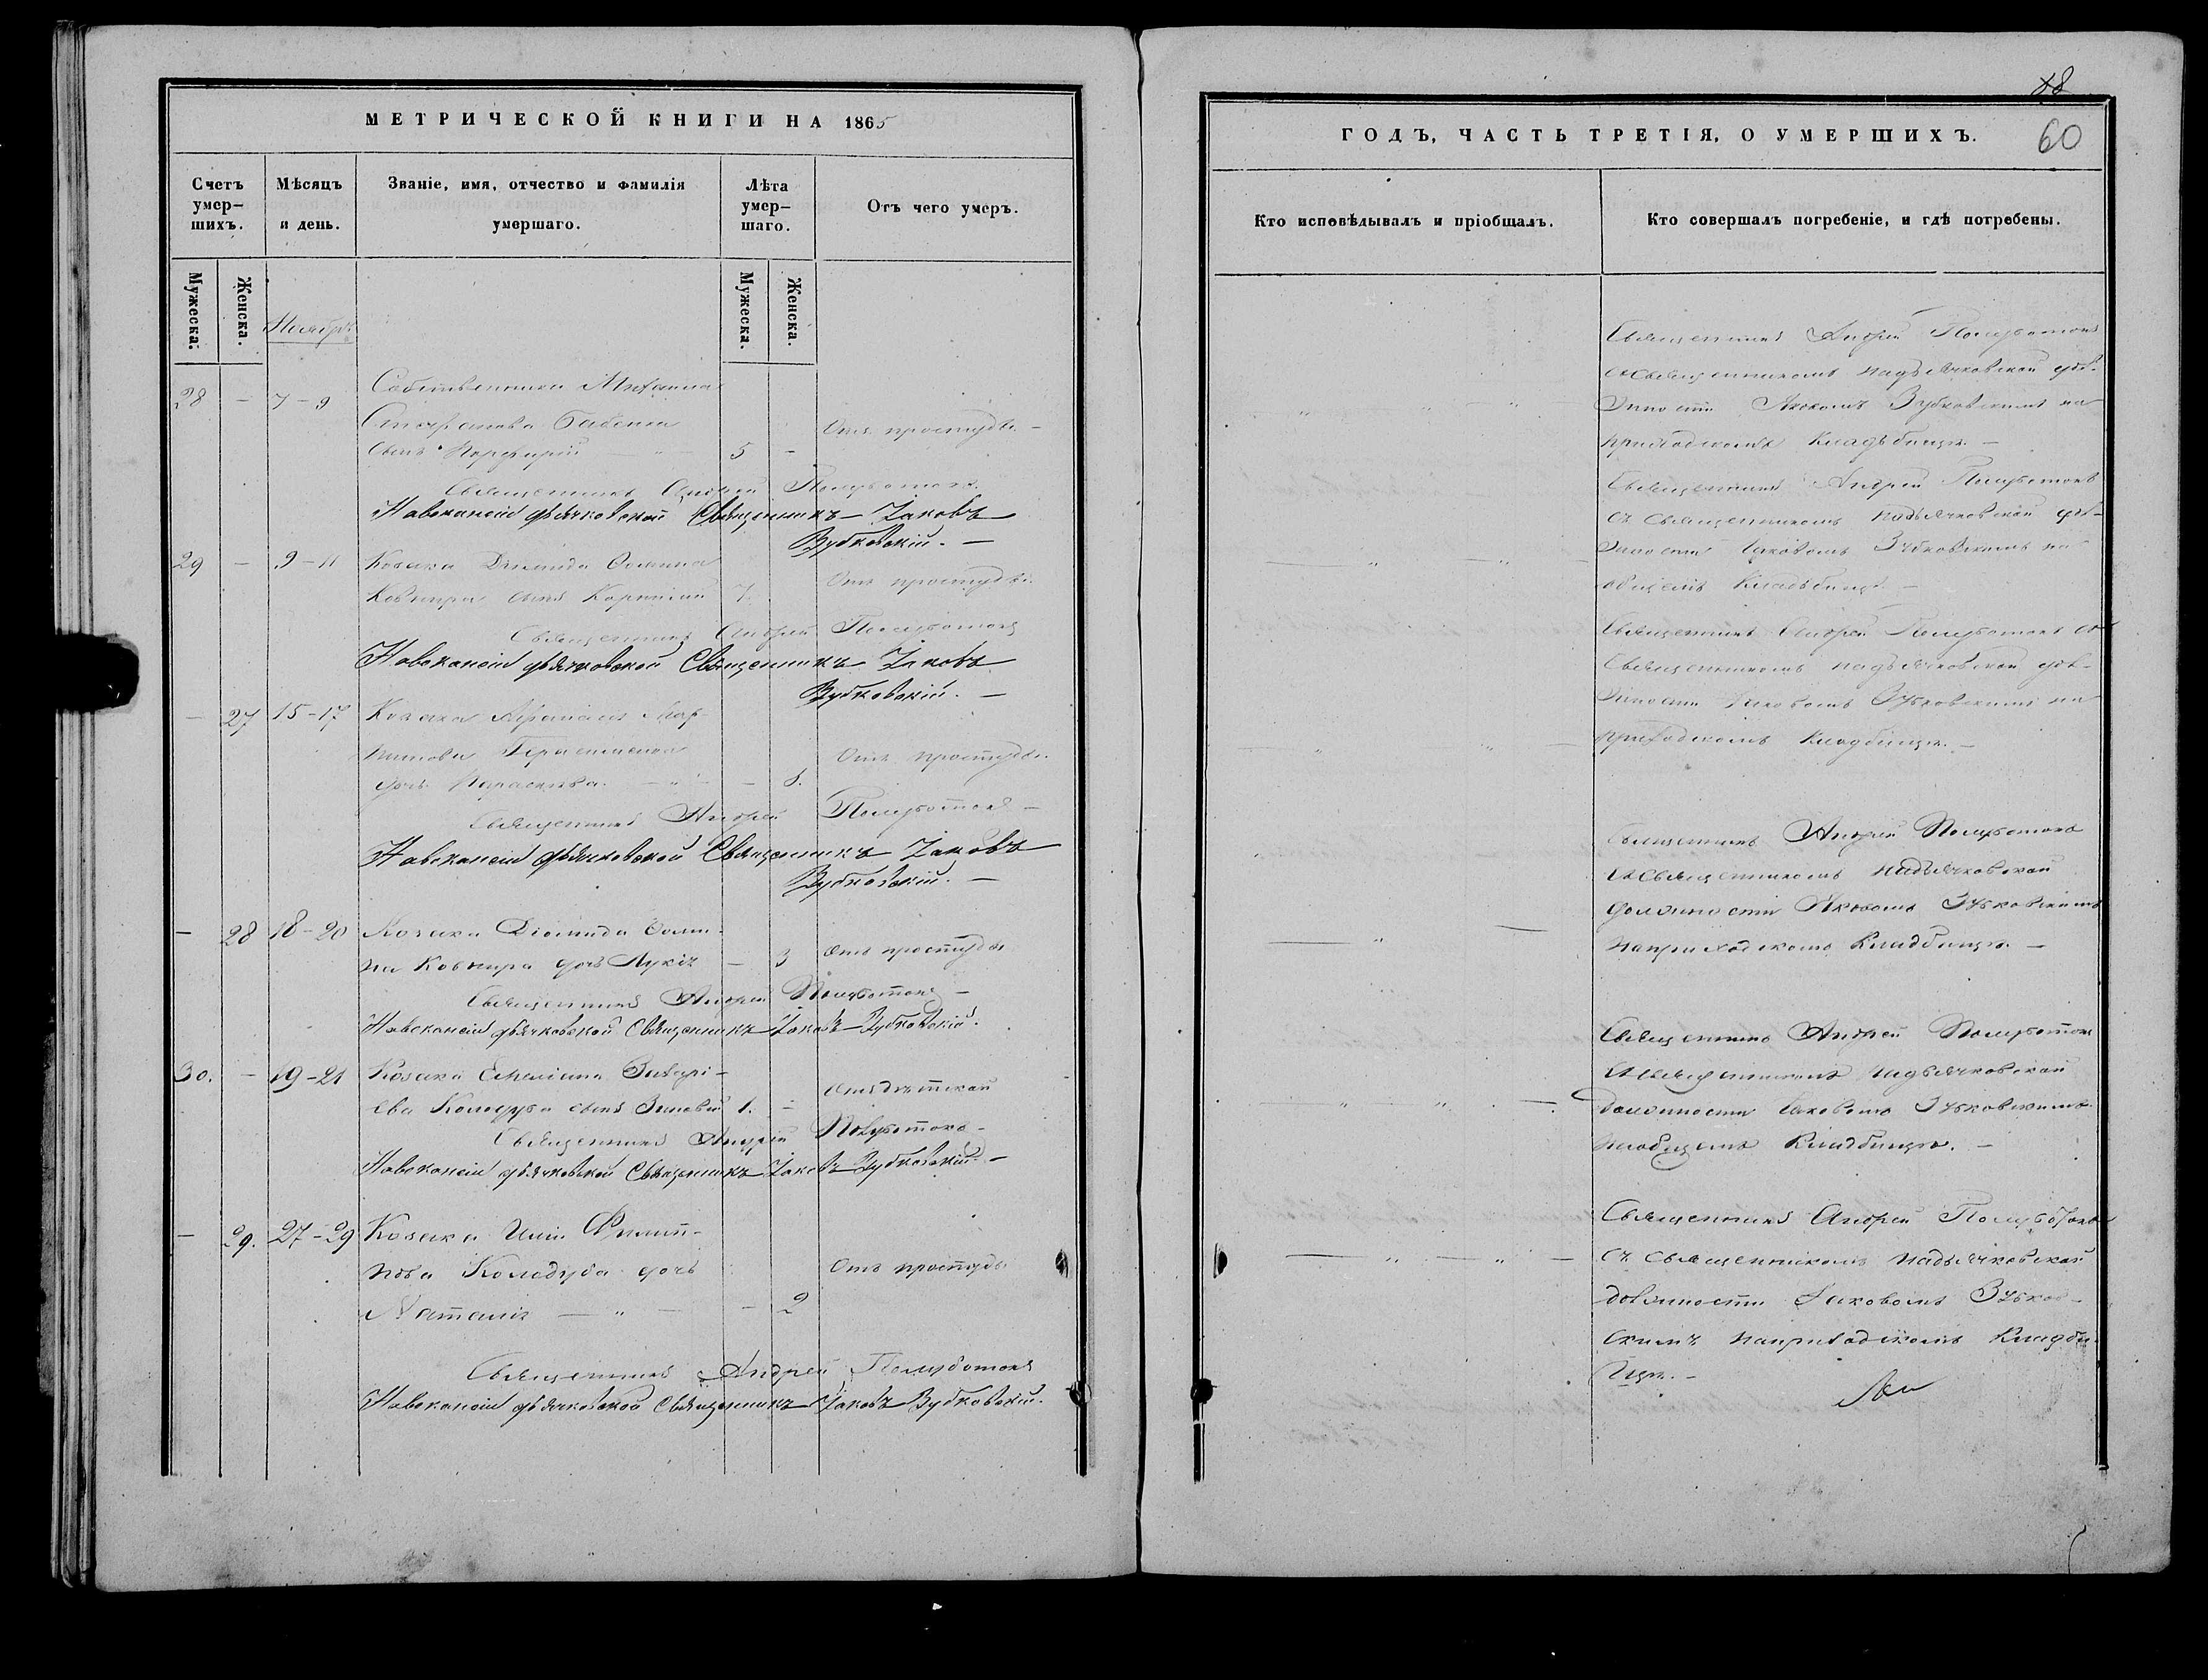 МЕТРИЧЕСКОЙ КНИГИ НА 1865
Счетъ умер-шихъ.
Мѣсяцъ и день.
Званіе, имя, отчество и фамилія умершаго.
Лѣта умер-шаго.
Отъ чего умеръ.
Мужеска.
Женска.
Мужеска.
Женска.
Ноябрь
28 — 7-9 Собственника Михаила
Стефанова Бабенка
сынъ Порфирій 5 - Отъ простуды. -
Священникъ Андрей Полуботокъ
На вакансіи дьячковской Священникъ Іаковъ
Зубковскій. —
29 — 9-11 Козака Діомида Фомина
Ковтира сынъ Корнилій 7. Отъ простуды.
Священникъ Андрей Полуботокъ
На вакансіи дьячковской Священникъ Іаковъ
Зубковскій. —
— 27 15-17 Козака Афанасія Мар-
тинова Герасименка
дочь Параскева. — 8. Отъ простуды.
Священникъ Андрей Полуботокъ —
На вакансіи дьячковской Священникъ Іаковъ
Зубковскій. —
— 28 18-20 Козака Діомида Фоми-
на Ковтира дочь Лукія — 3 Отъ простуды
Священникъ Андрей Полуботокъ —
На вакансіи дьячковской Священникъ Іаковъ Зубковскій.
30. - 19-21 Козака Емеліана Захарі-
ева Колодуба сынъ Зиновій 1. - Отъ дѣтской
Священникъ Андрей Полуботокъ -
На вакансіи дьячковской Священникъ Іаковъ Зубковскій. —
— 29. 27-29 Козака Иліи Филип-
пова Колодуба дочь Отъ простуды
Наталія — " — - 2
Священникъ Андрей Полуботокъ
На вакансіи дьячковской Священникъ Іаковъ Зубковскій.
ГОДЪ, ЧАСТЬ ТРЕТІЯ, О УМЕРШИХЪ.
60
Кто исповѣдывалъ и пріобщалъ.
Кто совершалъ погребеніе, и гдѣ погребены.
Священникъ Андрей Полуботокъ
со Священникомъ на дьячковской дол-
жности Яковомъ Зубковскимъ на
приходскомъ кладбищѣ. —
Священникъ Андрей Полуботокъ
съ Священникомъ на дьячковской дол-
жности Іаковомъ Зубковскимъ на
общемъ кладбищѣ. —
Священникъ Андрей Полуботокъ со
Священникомъ на дьячковской дол-
жности Іаковомъ Зубковскимъ на
приходскомъ кладбищѣ. —
Священникъ Андрей Полуботокъ
со Священникомъ на дьячковской
должности Яковомъ Зубковскимъ
на приходскомъ кладбищѣ. —
Священникъ Андрей Полуботокъ
со Священникомъ на дьячковской
должности Іаковомъ Зубковскимъ
на общемъ кладбищѣ. —
Священникъ Андрей Полуботокъ
съ Священникомъ на дьячковской
должности Іаковомъ Зубков-
скимъ на приходскомъ кладби-
щѣ. -